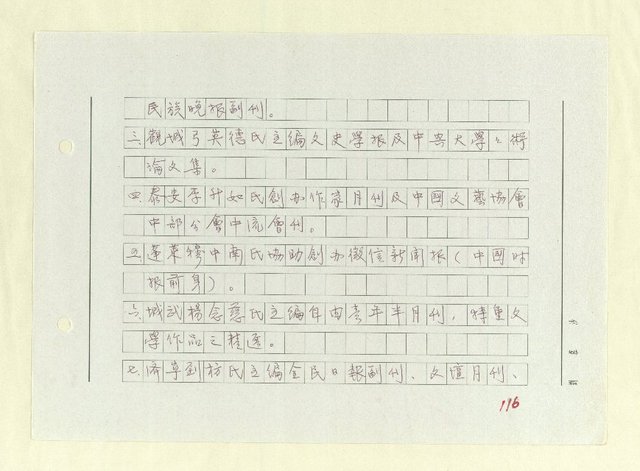 民族晚报副刊。
三、觀城弓英德氏主編文史學报及中央大學々術
論文集。
四、泰安李升如氏創办作家月刊及中國文藝協會
中部分會中流會刊。
五、蓬萊穆中南氏協助創办徵信新聞报(中國时
报前身)。
六、城武楊念慈氏主編自由青年半月刊,特重文
學作品之
七、济 氏主編全民日報副刊、文壇月刊、
116